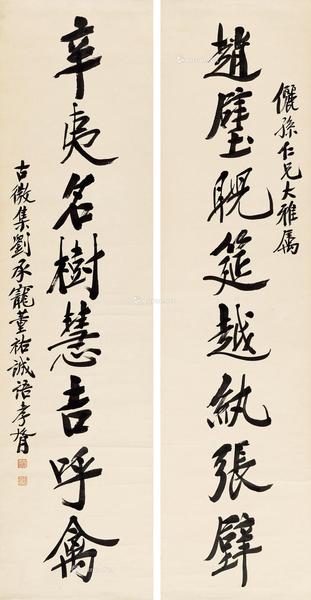 儷孫仁兄大雅屬
趙璧睨筵越紈張壁
辛夷名樹慧吉呼禽
古微集劉承寵董祐誠語孝胥